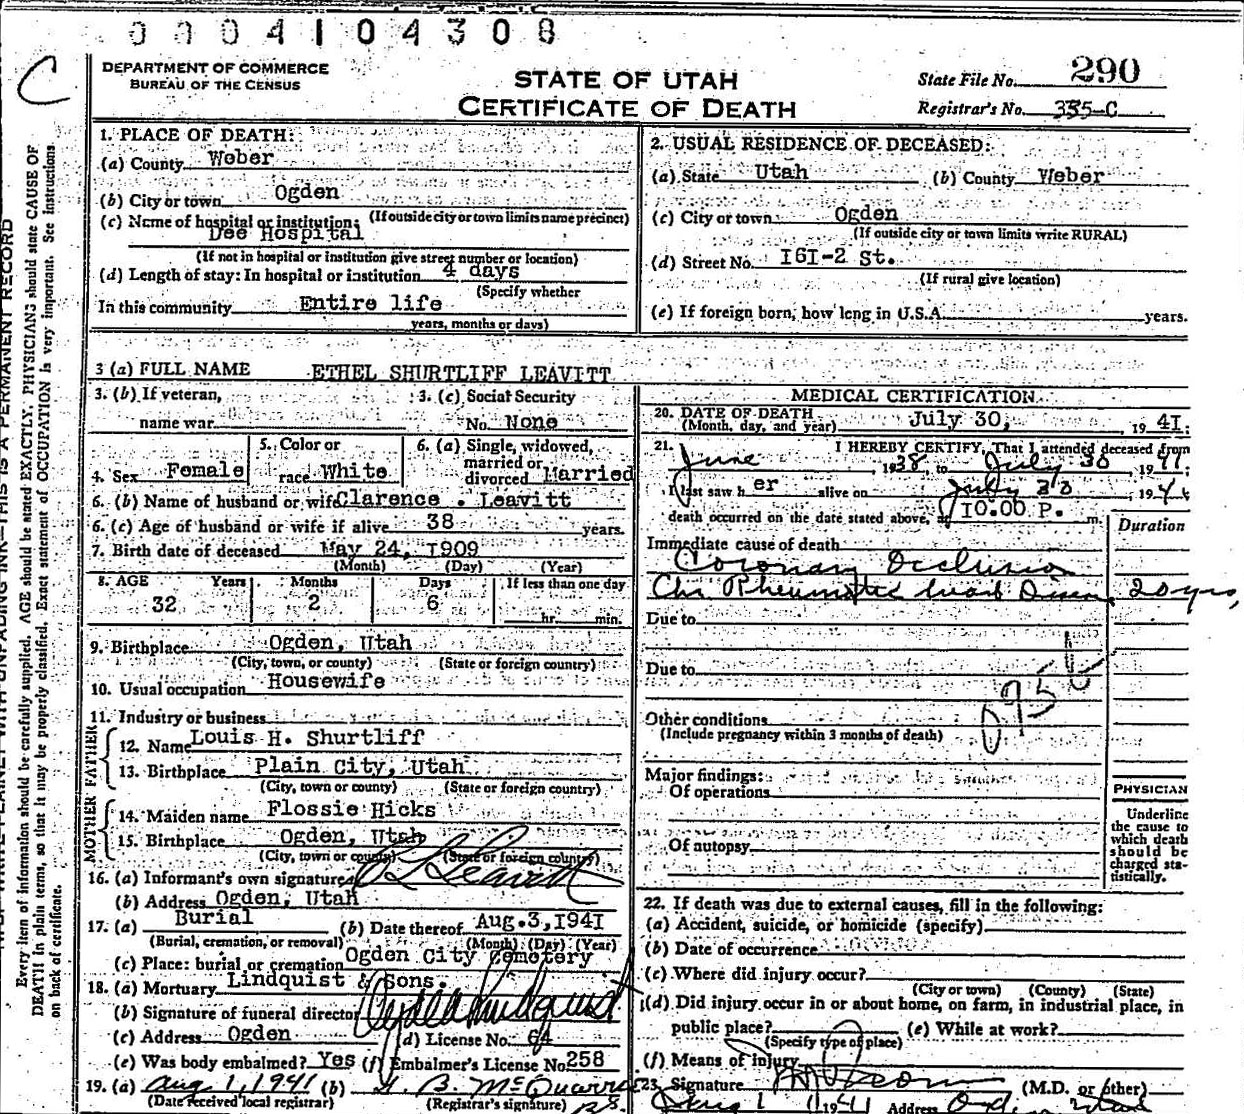 0004104308
C
DEPARTMENT OF COMMERCE
BUREAU OF THE CENSUS
STATE OF UTAH
CERTIFICATE OF DEATH
State File No. 290
Registrar's No. 335-C
1. PLACE OF DEATH:
(a) County Weber
(b) City or town Ogden
(If outside city or town limits name precinct)
(c) Name of hospital or institution:
Dee Hospital
(If not in hospital or institution give street number or location)
(d) Length of stay: In hospital or institution 4 days
(Specify whether
In this community Entire life
years, months or days)
2. USUAL RESIDENCE OF DECEASED:
(a) State Utah (b) County Weber
(c) City or town Ogden
(If outside city or town limits write RURAL)
(d) Street No. I6I-2 St.
(If rural give location)
(e) If foreign born, how long in U.S.A. years.
3 (a) FULL NAME ETHEL SHURTLIFF LEAVITT
3. (b) If veteran, 3. (c) Social Security
name war No. None
4. Sex Female 5. Color or race White 6. (a) Single, widowed, married or divorced Married
6. (b) Name of husband or wife Clarence . Leavitt
6. (c) Age of husband or wife if alive 38 years.
7. Birth date of deceased May 24, I909
(Month) (Day) (Year)
8. AGE Years Months Days If less than one day
32 2 6 hr. min.
9. Birthplace Ogden, Utah
(City, town, or county) (State or foreign country)
10. Usual occupation Housewife
11. Industry or business
FATHER
12. Name Louis H. Shurtliff
13. Birthplace Plain City, Utah
(City, town or county) (State or foreign country)
MOTHER
14. Maiden name Flossie Hicks
15. Birthplace Ogden, Utah
(City, town or county) (State or foreign country)
16. (a) Informant's own signature Leavitt
(b) Address Ogden, Utah
17. (a) Burial (b) Date thereof Aug.3,I94I
(Burial, cremation, or removal) (Month) (Day) (Year)
(c) Place: burial or cremation Ogden City Cemetery
18. (a) Mortuary Lindquist & Sons.
(b) Signature of funeral director Lindquist
(c) Address Ogden (d) License No. 64
(e) Was body embalmed? Yes (f) Embalmer's License No. 258
19. (a) Aug 1, 1941 (b)
(Date received local registrar) (Registrar's signature)
MEDICAL CERTIFICATION
20. DATE OF DEATH July 30, 194I
(Month, day, and year)
21. I HEREBY CERTIFY, That I attended deceased from
June , 1938, to July 30 , 1941;
I last saw her alive on July 30 , 194
death occurred on the date stated above, at I0.00 P. m.
Duration
Immediate cause of death
Coronary Occlusion
Chr Rheumatic heart Disease 20 yrs,
Due to
Due to
Other conditions
(Include pregnancy within 3 months of death)
Major findings:
Of operations
Of autopsy
PHYSICIAN
Underline the cause to which death should be charged statistically.
22. If death was due to external causes, fill in the following:
(a) Accident, suicide, or homicide (specify)
(b) Date of occurrence
(c) Where did injury occur?
(City or town) (County) (State)
(d) Did injury occur in or about home, on farm, in industrial place, in
public place? (e) While at work?
(Specify type of place)
(f) Means of injury
23. Signature (M.D. or other)
Aug 1 1941 Address Ogden Utah
THIS IS A PERMANENT RECORD
Every item of information should be carefully supplied. AGE should be stated EXACTLY. PHYSICIANS should state CAUSE OF
DEATH in plain terms, so that it may be properly classified. Exact statement of OCCUPATION is very important. See Instructions
on back of certificate.